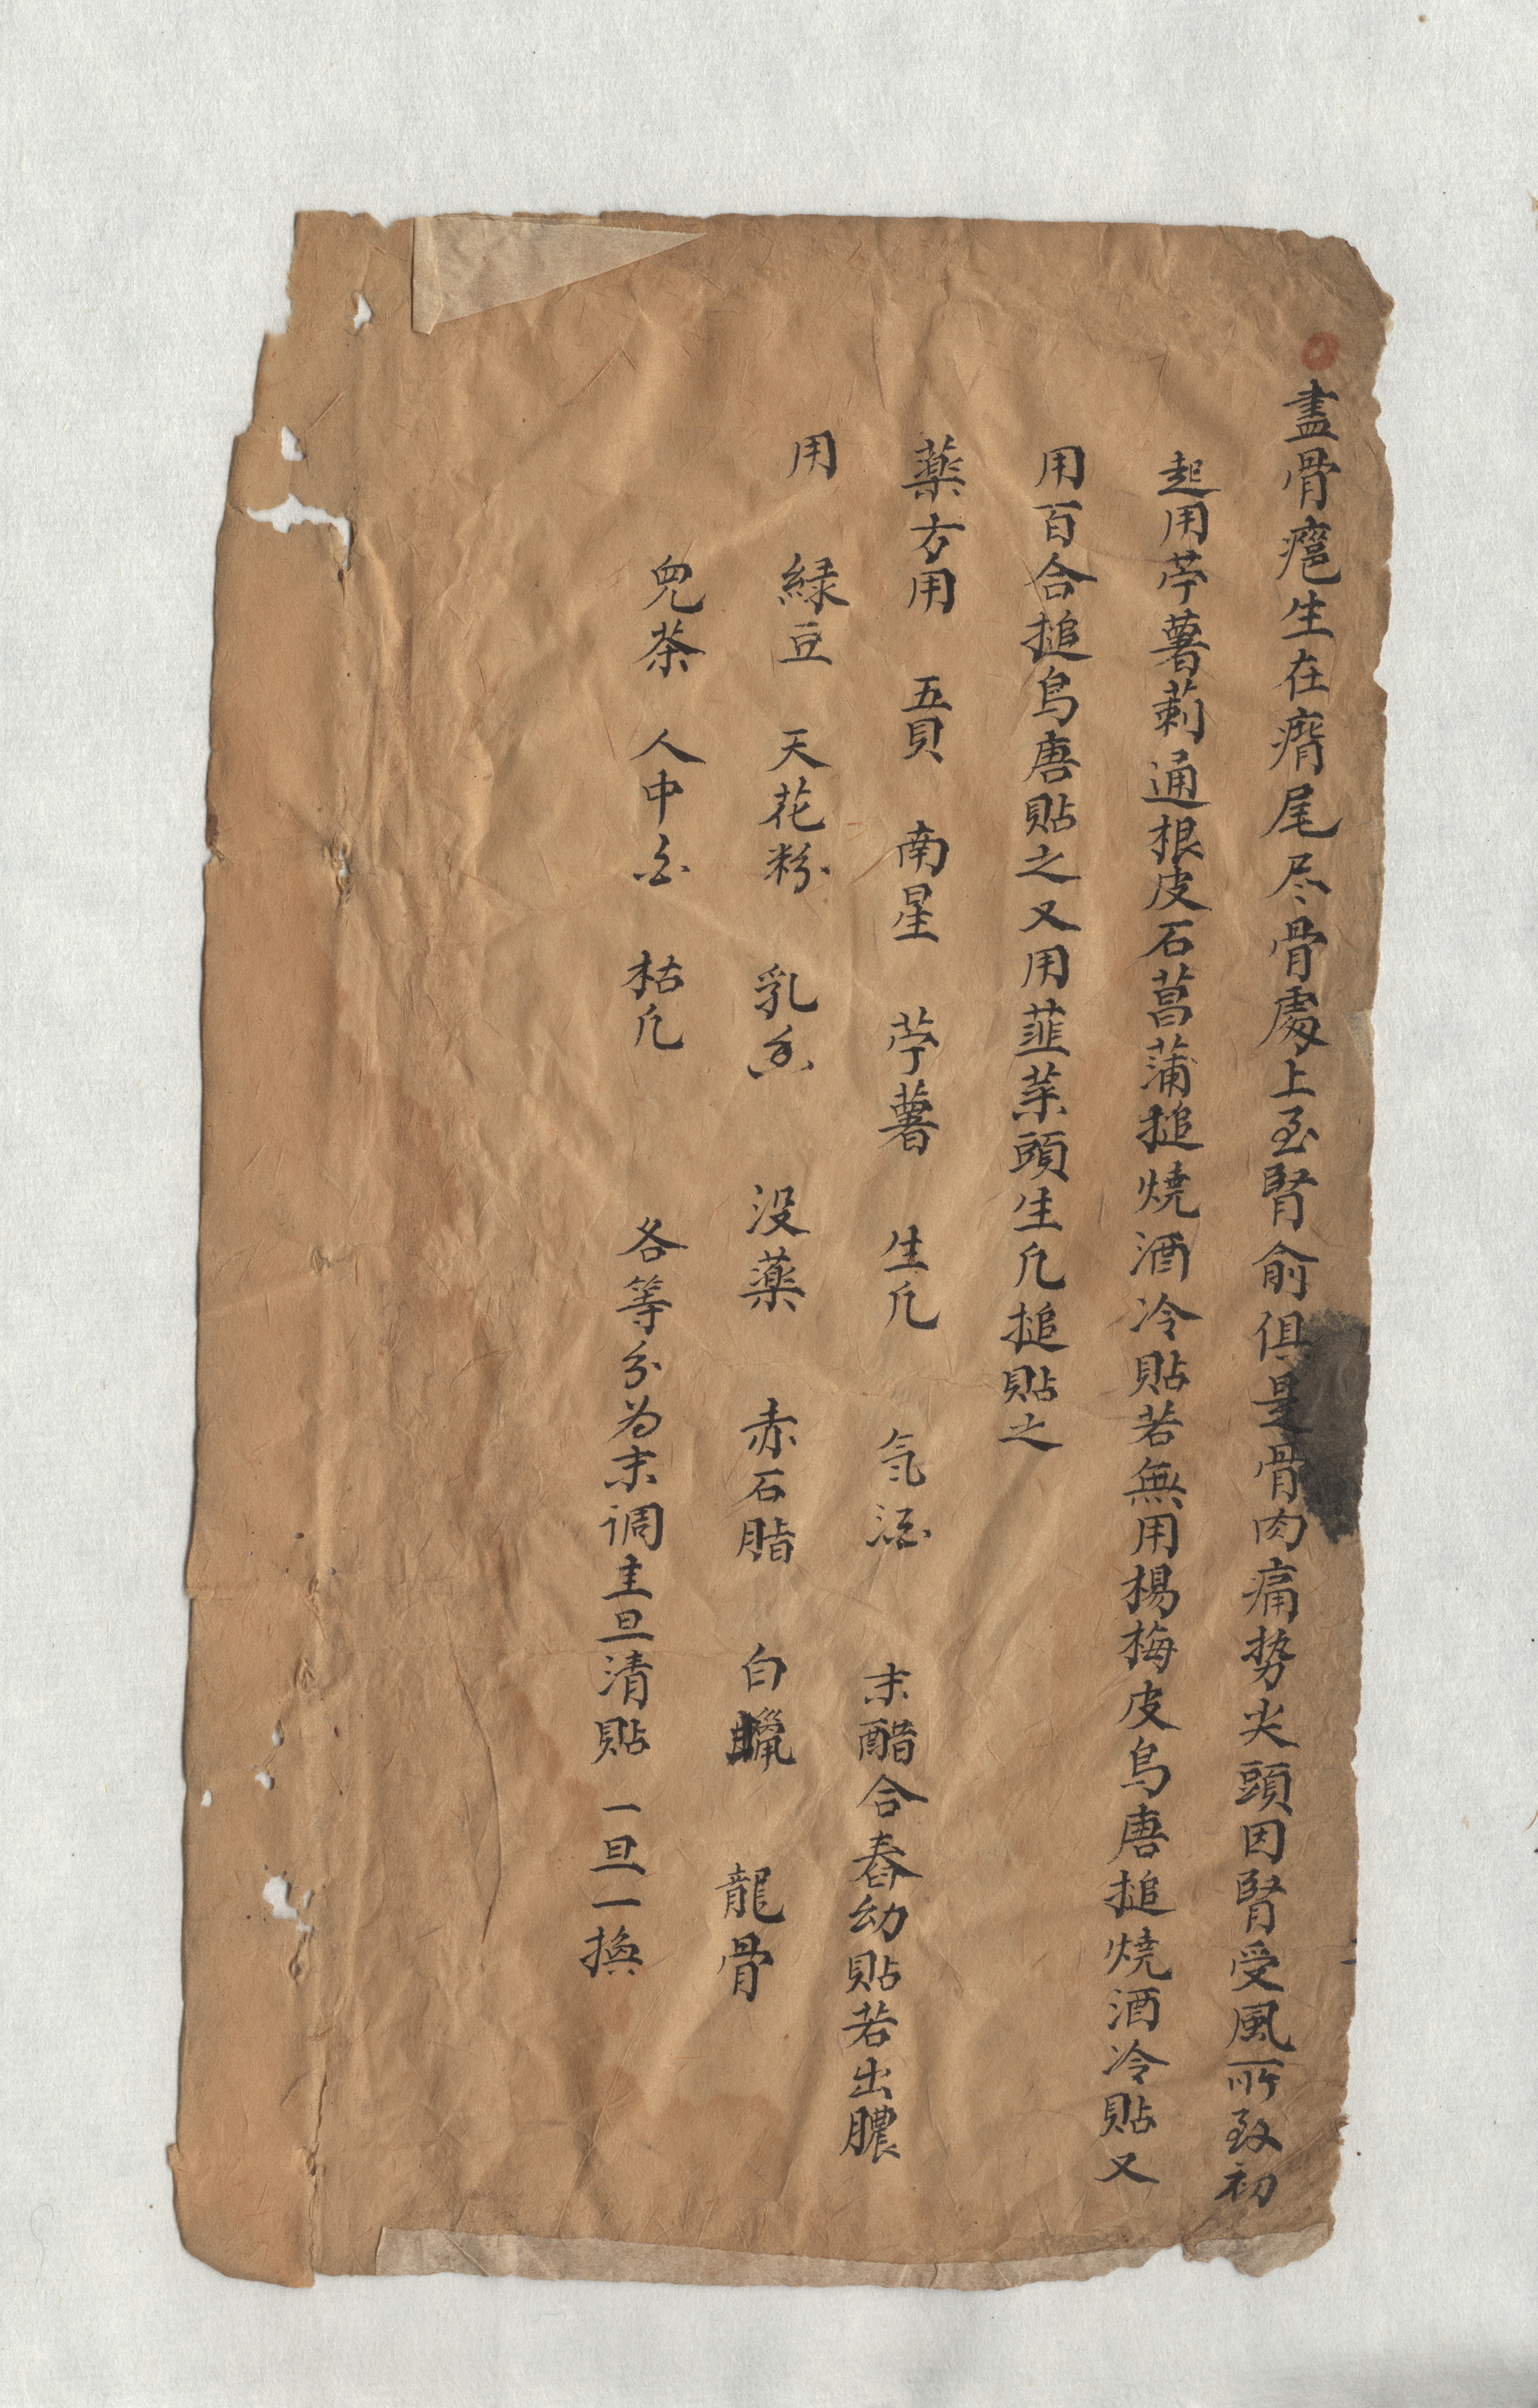 盡骨瘪生在瘠尾尽骨處上至腎俞俱是骨肉痛势尖頭因腎受風所致初
起用苧薯莿通根皮石菖蒲搥燒酒冷貼若無用楊梅皮烏唐搥燒酒冷貼又
用百合搥烏唐貼之又用韮菜頭生凡搥貼之
薬方用 五貝 南星 苧薯 生凡 氕浥 末醋合舂幼貼若出膿
用 緑豆 天花粉 乳香 没薬 赤石脂 白蠟 龍骨
兒茶 人中白 枯凡 各等分为末调圭旦清貼 一旦一換